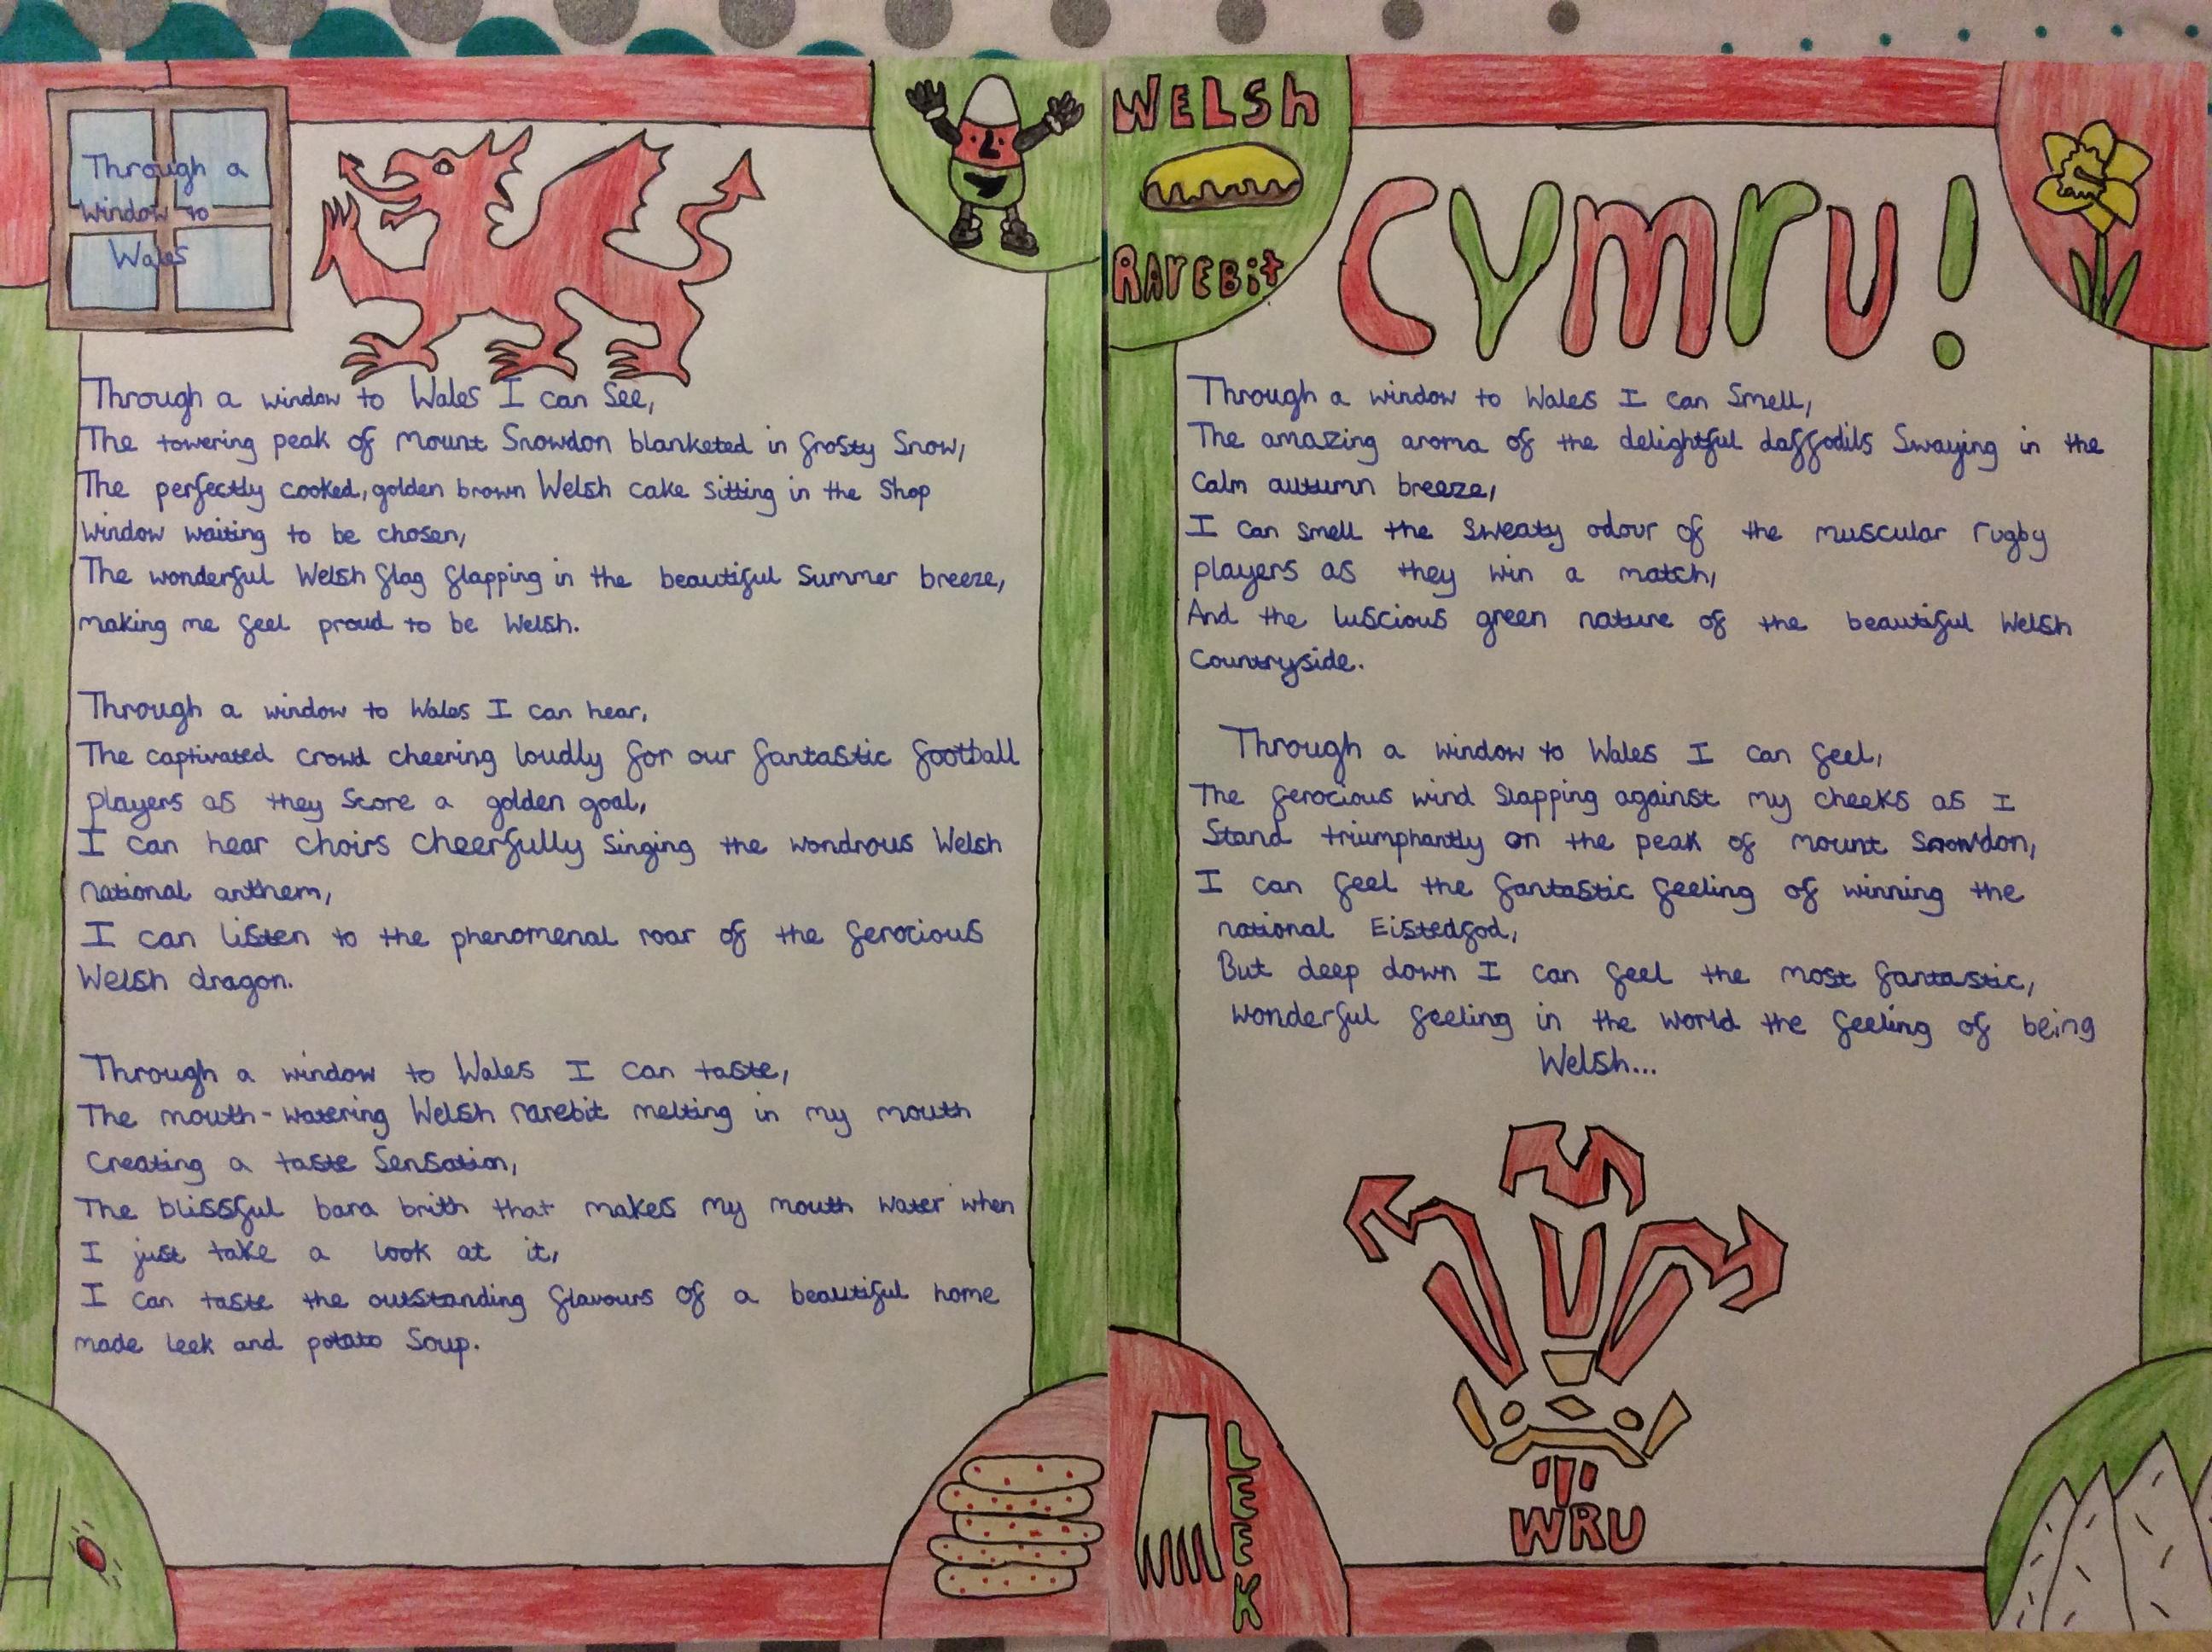 Through a
window to
Wales
Through a window to Wales I can see,
The towering peak of mount Snowdon blanketed in frosty snow,
The perfectly cooked, golden brown Welsh cake sitting in the shop
window waiting to be chosen,
The wonderful Welsh flag flapping in the beautiful summer breeze,
making me feel proud to be Welsh.
Through a window to Wales I can hear,
The captivated crowd cheering loudly for our fantastic football
players as they score a golden goal,
I can hear choirs cheerfully singing the wondrous Welsh
national anthem,
I can listen to the phenomenal roar of the ferocious
Welsh dragon.
Through a window to Wales I can taste,
The mouth-watering Welsh rarebit melting in my mouth
creating a taste sensation,
The blissful bara brith that makes my mouth water when
I just take a look at it,
I can taste the outstanding flavours of a beautiful home
made leek and potato soup.
WELSh
RArEBit
Cymru!
Through a window to Wales I can smell,
The amazing aroma of the delightful daffodils swaying in the
calm autumn breeze,
I can smell the sweaty odour of the muscular rugby
players as they win a match,
And the luscious green nature of the beautiful Welsh
countryside.
Through a window to Wales I can feel,
The ferocious wind slapping against my cheeks as I
stand triumphantly on the peak of mount Snowdon,
I can feel the fantastic feeling of winning the
national Eistedfod,
But deep down I can feel the most fantastic,
wonderful feeling in the world the feeling of being
Welsh...
LEEK
WRU